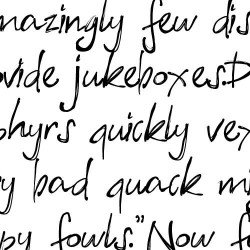 mazingly few dis
ovide jukeboxes.D
phyrs quickly vex
y bad quack mi
py fowls."Now f